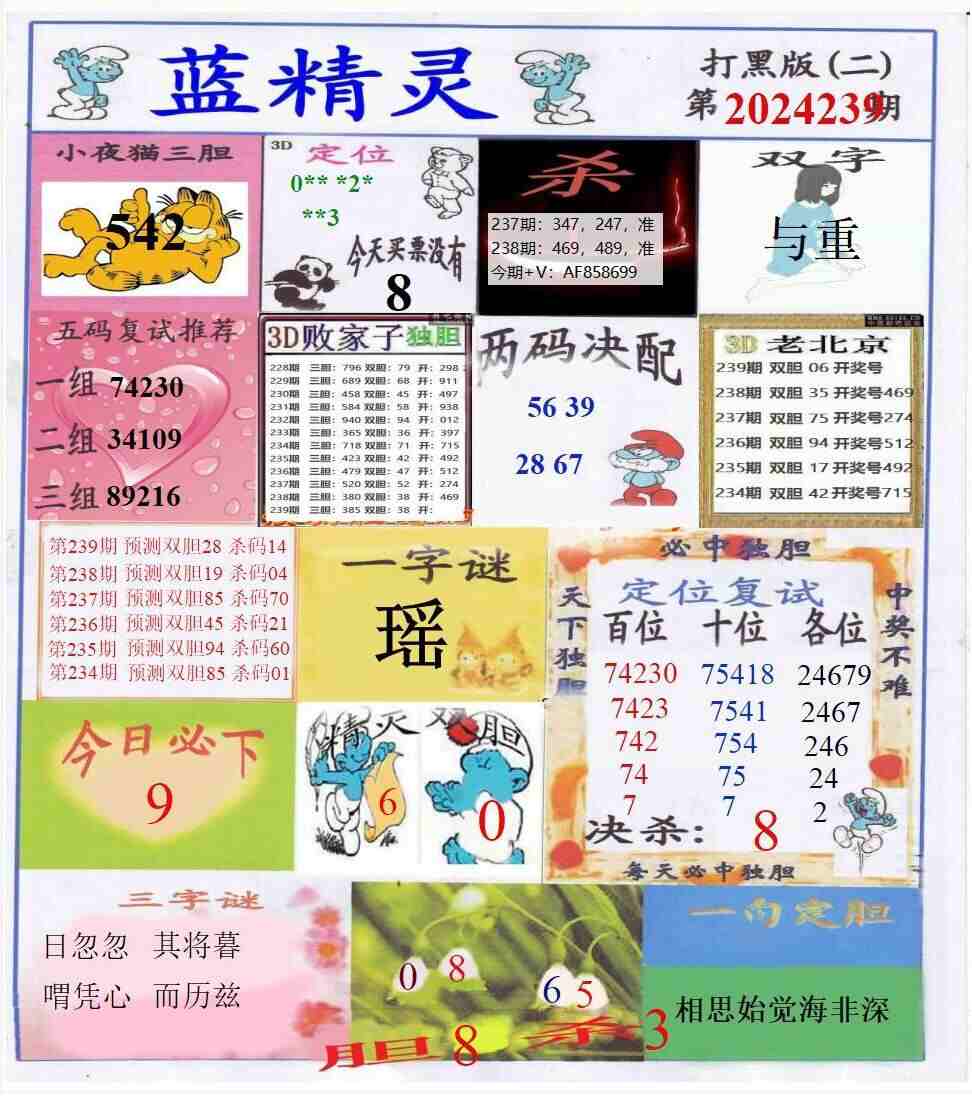 蓝精灵
打黑版(二)
第2024239期
小夜猫三胆
542
3D 定位
0** *2*
**3
今天买票没有
8
杀
237期：347，247，准
238期：469，489，准
今期+V：AF858699
双字
与重
五码复试推荐
一组 74230
二组 34109
三组 89216
3D败家子独胆
228期 三胆：796 双胆：79 开：298
229期 三胆：689 双胆：68 开：911
230期 三胆：458 双胆：45 开：497
231期 三胆：584 双胆：58 开：938
232期 三胆：940 双胆：94 开：012
233期 三胆：365 双胆：36 开：397
234期 三胆：718 双胆：71 开：715
235期 三胆：423 双胆：42 开：492
236期 三胆：479 双胆：47 开：512
237期 三胆：520 双胆：52 开：274
238期 三胆：380 双胆：38 开：469
239期 三胆：385 双胆：38 开：
两码决配
56 39
28 67
3D 老北京
239期 双胆 06 开奖号
238期 双胆 35 开奖号469
237期 双胆 75 开奖号274
236期 双胆 94 开奖号512
235期 双胆 17 开奖号492
234期 双胆 42 开奖号715
第239期 预测双胆28 杀码14
第238期 预测双胆19 杀码04
第237期 预测双胆85 杀码70
第236期 预测双胆45 杀码21
第235期 预测双胆94 杀码60
第234期 预测双胆85 杀码01
一字谜
瑶
必中独胆
天下独胆
中奖不难
定位复试
百位 十位 各位
74230 75418 24679
7423 7541 2467
742 754 246
74 75 24
7 7 2
决杀：8
每天必中独胆
今日必下
9
精灵双胆
6 0
三字谜
日忽忽 其将暮
喟凭心 而历兹
0 8 6 5
胆 8 杀 3
一向定胆
相思始觉海非深